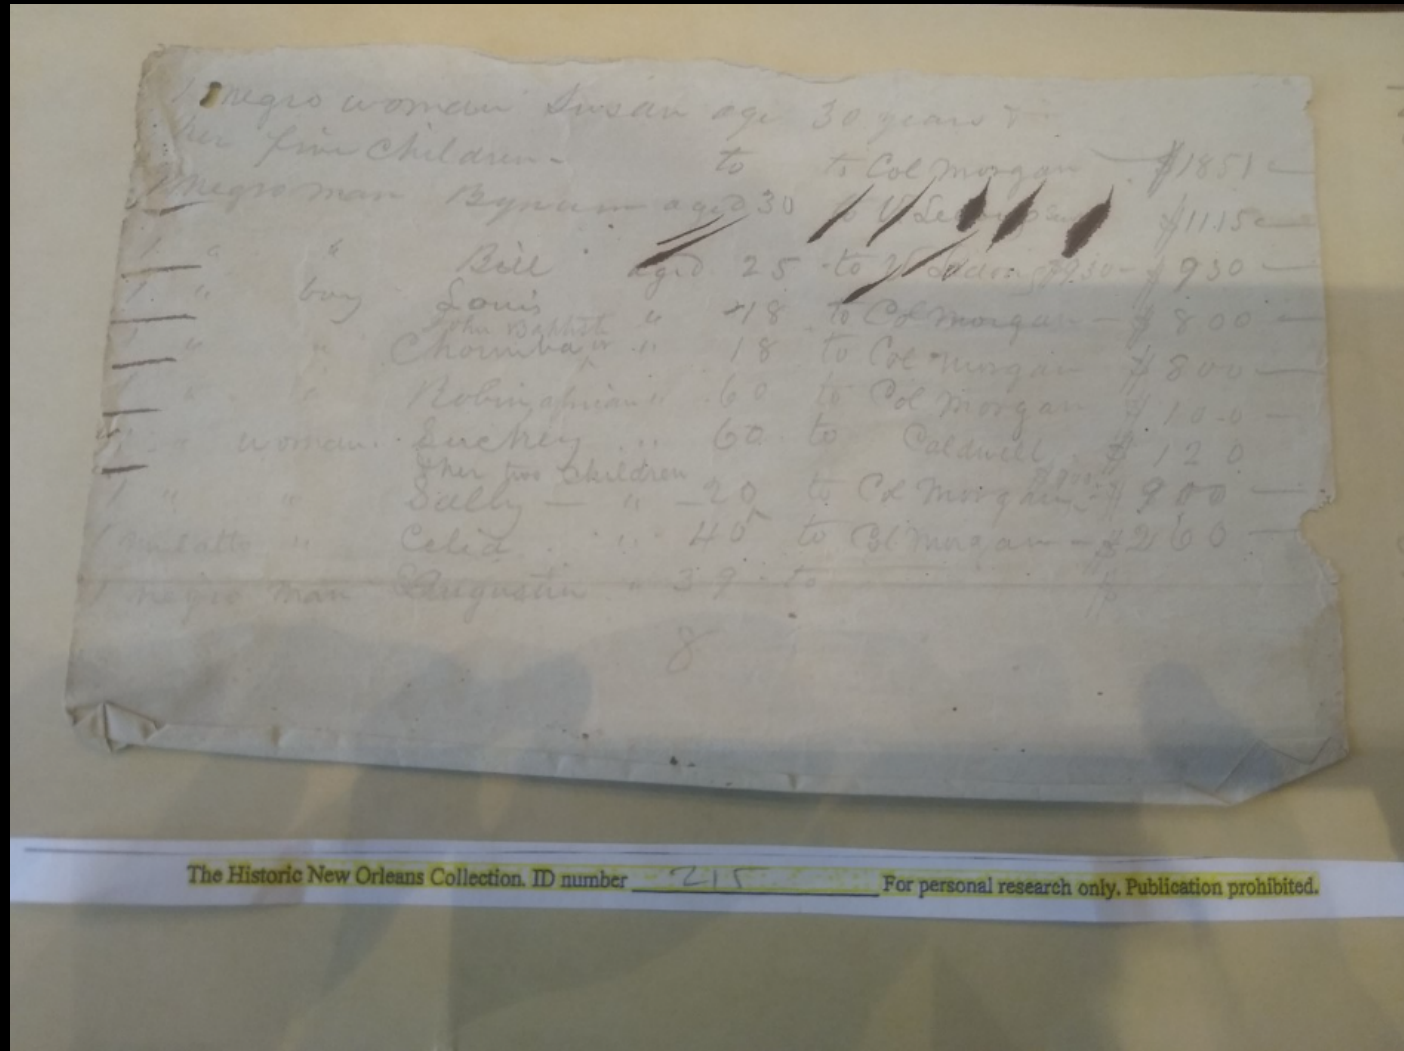 1 negro woman Susan age 30 years &
her five Children - to to Col Morgan $1851
1 negro man Bynum aged 30 to V
1 " " Bill aged 25 to V $930 - $930
1 " boy Louis " 18 to Col Morgan - $800
John Baptist
1 " " " 18 to Col Morgan $800
" " Robin, african " 60 to Col Morgan $100
1 " woman Suckey " 60 to Caldwell $120
& her two Children
1 " " Sally - " 20 to Col Morgan - $900
1 mulatto " Celia " 40 to Col Morgan - $260
1 negro man Augustin " 39 to $
8
The Historic New Orleans Collection. ID number 215 For personal research only. Publication prohibited.